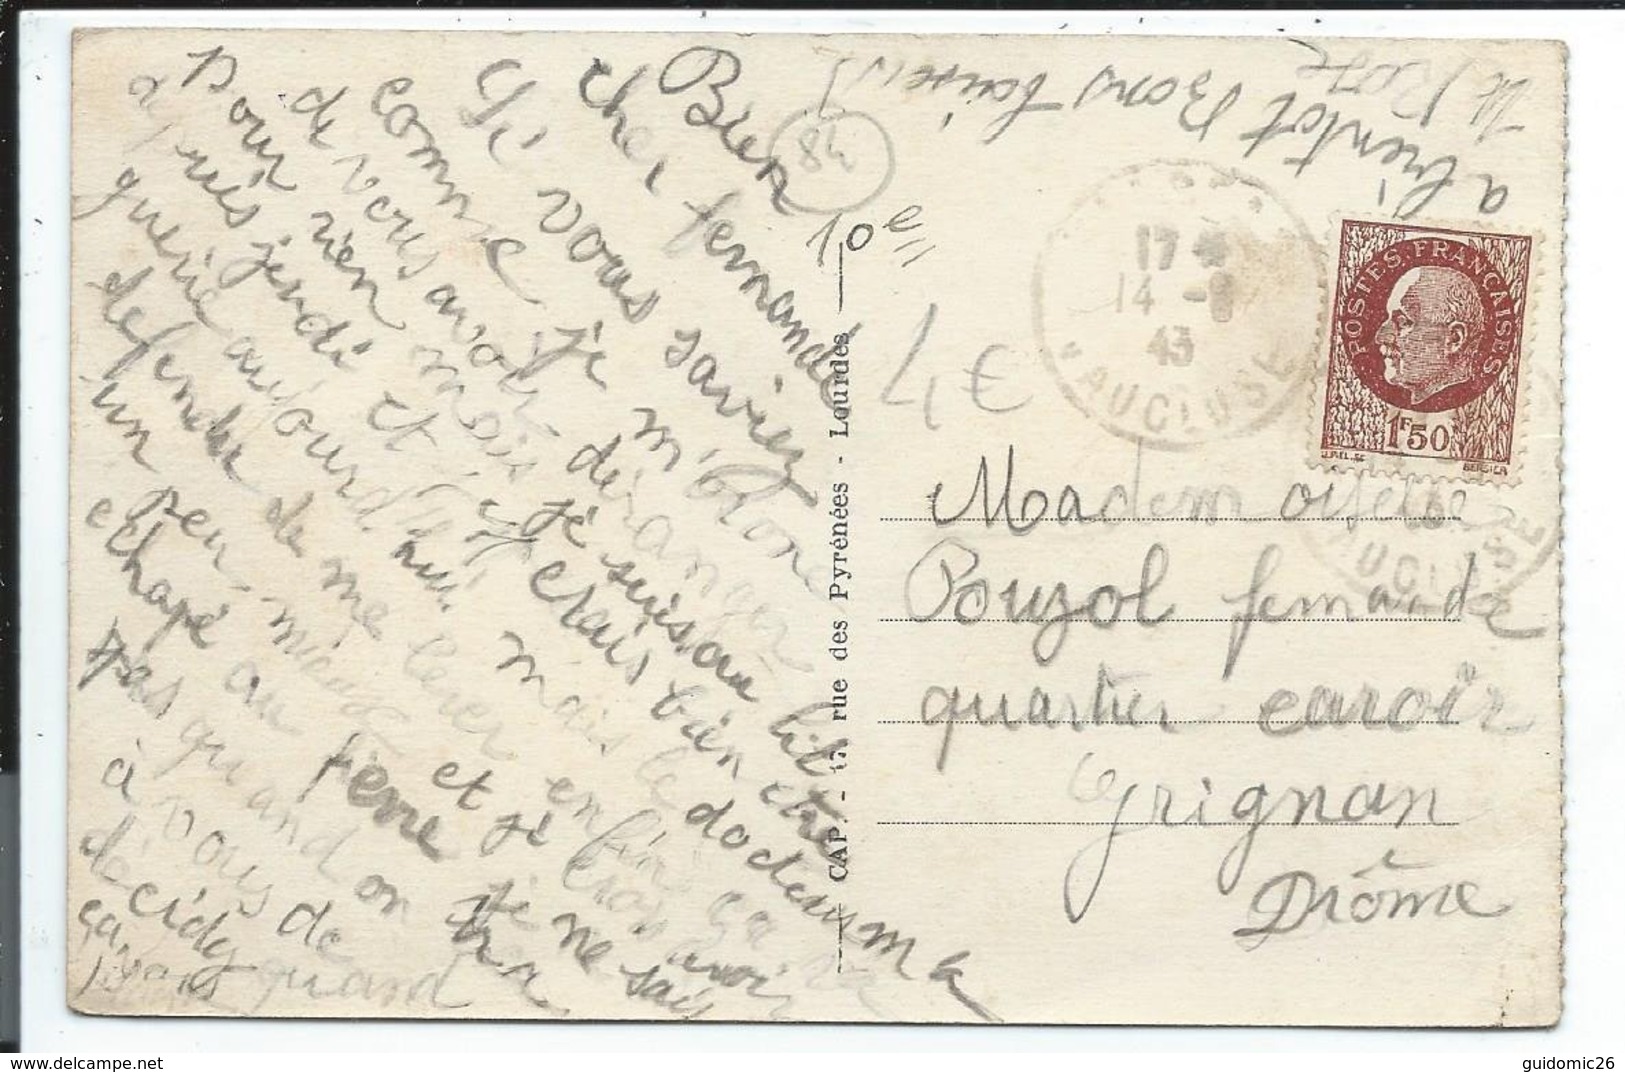 Bien
cher fernande
Si vous saviez
comme je m'
de vous avoir déranger
Pour rien mais je suis au lit
après jendi et j'étrais bien être
guérie aujourd'hui. mais le docteur m'a
defendu de me lever enfin ça va
un peu mieux et je crois avoir
échapé au je ne sais
pas quand on
à vous de
décider quand
ça
84
10
4€
a bientot Bons baisers
Rose
17
14 - 8
43
VAUCLUSE
POSTES FRANÇAISES
1F50
BERSIER
VAUCLUSE
CAP - 17 rue des Pyrénées - Lourdes
Mademoiselle
Pouzol fernande
quartier caroir
Grignan
Drôme
www.delcampe.net
guidomic26